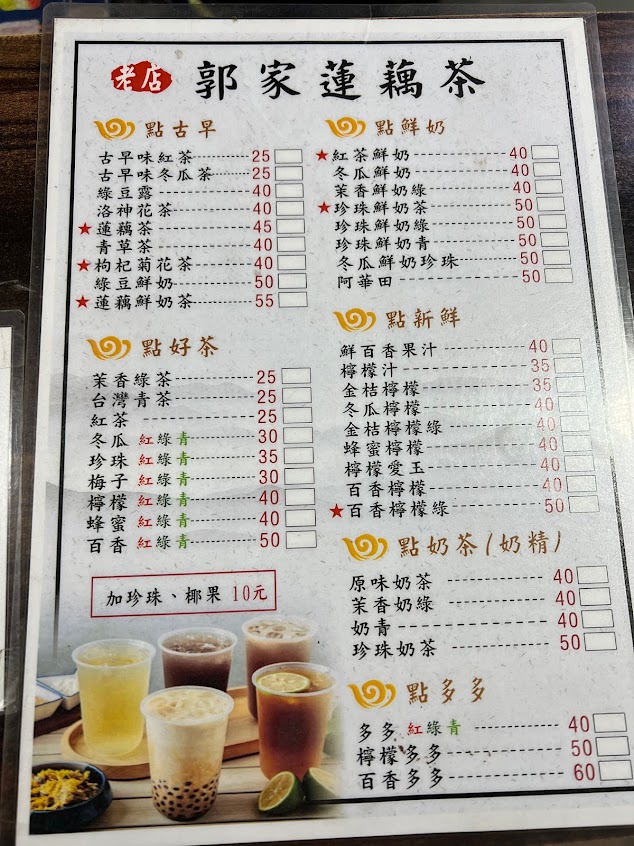 老店 郭家蓮藕茶
點古早
古早味紅茶 25
古早味冬瓜茶 25
綠豆露 40
洛神花茶 40
★蓮藕茶 45
青草茶 40
★枸杞菊花茶 40
綠豆鮮奶 50
★蓮藕鮮奶茶 55
點好茶
茉香綠茶 25
台灣青茶 25
紅茶 25
冬瓜 紅綠青 30
珍珠 紅綠青 35
梅子 紅綠青 30
檸檬 紅綠青 40
蜂蜜 紅綠青 40
百香 紅綠青 50
加珍珠、椰果 10元
點鮮奶
★紅茶鮮奶 40
冬瓜鮮奶 40
茉香鮮奶綠 40
★珍珠鮮奶茶 50
珍珠鮮奶綠 50
珍珠鮮奶青 50
冬瓜鮮奶珍珠 50
阿華田 50
點新鮮
鮮百香果汁 40
檸檬汁 35
金桔檸檬 35
冬瓜檸檬 40
金桔檸檬綠 40
蜂蜜檸檬 40
檸檬愛玉 40
百香檸檬 40
★百香檸檬綠 50
點奶茶(奶精)
原味奶茶 40
茉香奶綠 40
奶青 40
珍珠奶茶 50
點多多
多多 紅綠青 40
檸檬多多 50
百香多多 60